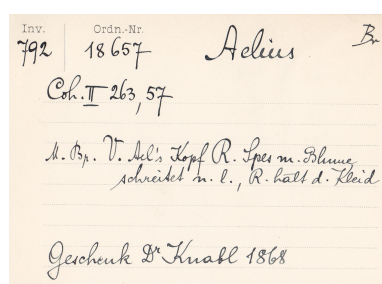 Inv. Ordn.-Nr. Br
792 18657 Aelius
Coh. II 263, 57
M. Br. V. Ael's Kopf R. Spes m. Blume
schreitet n. l., R. hält d. Kleid
Geschenk Dr Knabl 1868